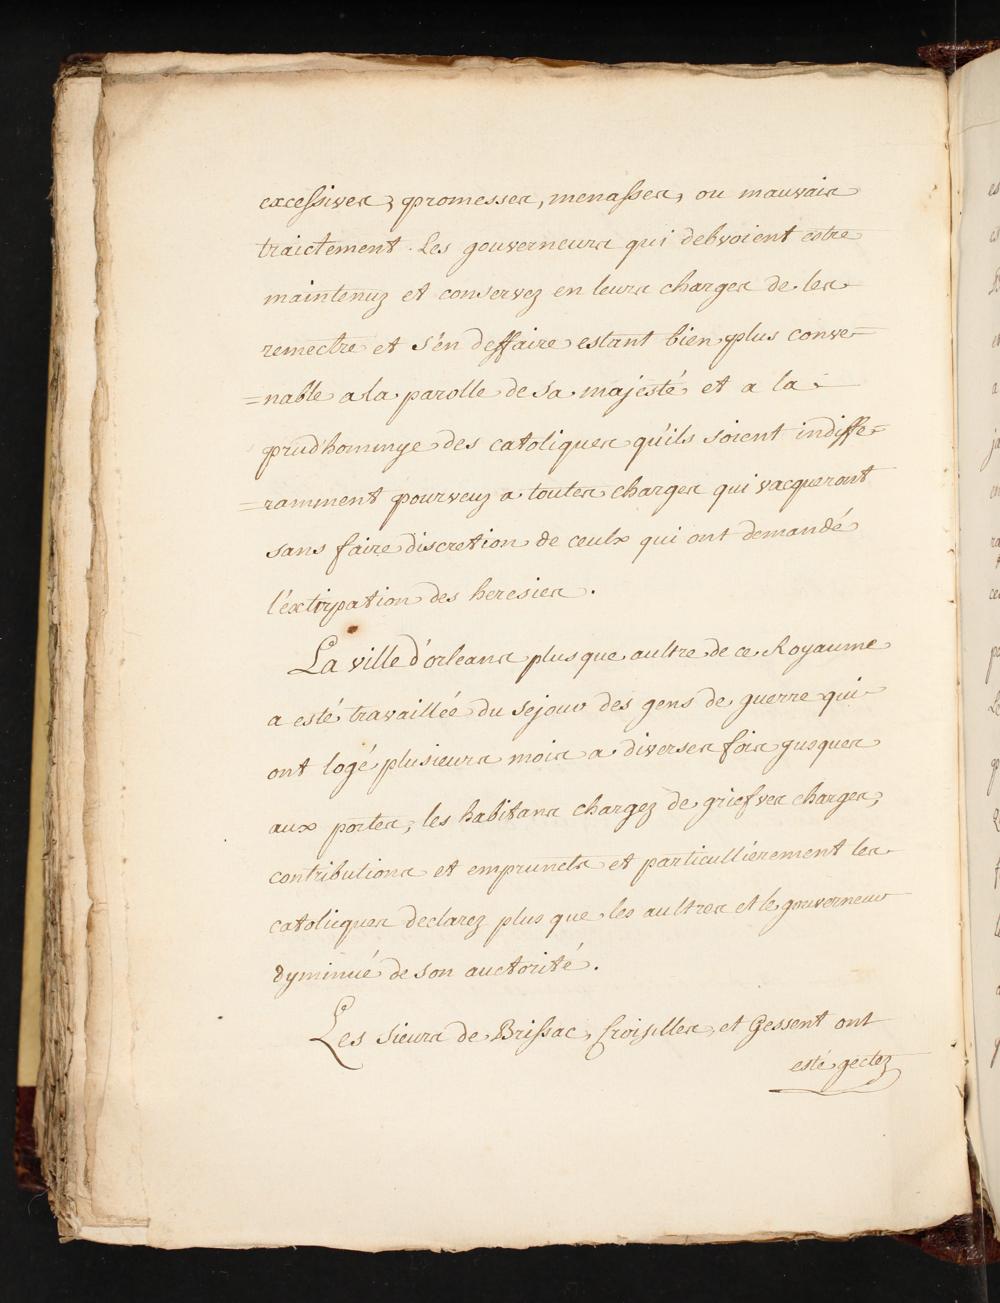 excessives, promesses, menasses, ou mauvais
traictement. Les gouverneurs qui debvoient estre
maintenuz et conservez en leurs charges de les
remectre et s'en deffaire estant bien plus conve-
=nable a la parolle de sa majesté et a la
prud'hommye des catoliques qu'ils soient indiffe-
=ramment pourveuz a toutes charges qui vacqueront
sans faire discretion de ceulx qui ont demandé
l'éxtirpation des heresies.
La ville d'orleans plus que aultre de ce Royaume
a esté travaillée du sejour des gens de guerre qui
ont logé plusieurs mois a diverses fois gusques
aux portes, les habitans chargez de griefves charges,
contributions et emprunctz et particullierement les
catolicques declarez plus que les aultres et le gouverneur
dyminué de son auctorité.
Les sieurs de Brissac, Croisilles, et Gessent ont
esté gectez